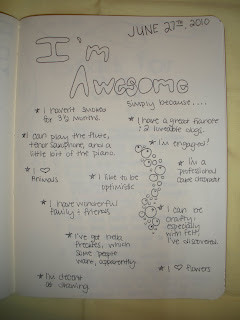 JUNE 27TH, 2010
I'm
Awesome
Simply because....
* I haven't smoked
for 3 1/2 months.
* I have a great fiancée
& 2 loveable dogs.
* I can play the flute,
tenor saxophone, and a
little bit of the piano.
* I'm engaged!
* I'm a
professional
* I ♡
Animals
* I like to be
optimistic
* I have wonderful
family & friends
* I can be
crafty,
especially
with felt,
I've discovered.
* I've got hella
freckles, which
some people
want, apparently.
* I'm decent
at drawing.
* I ♡ flowers